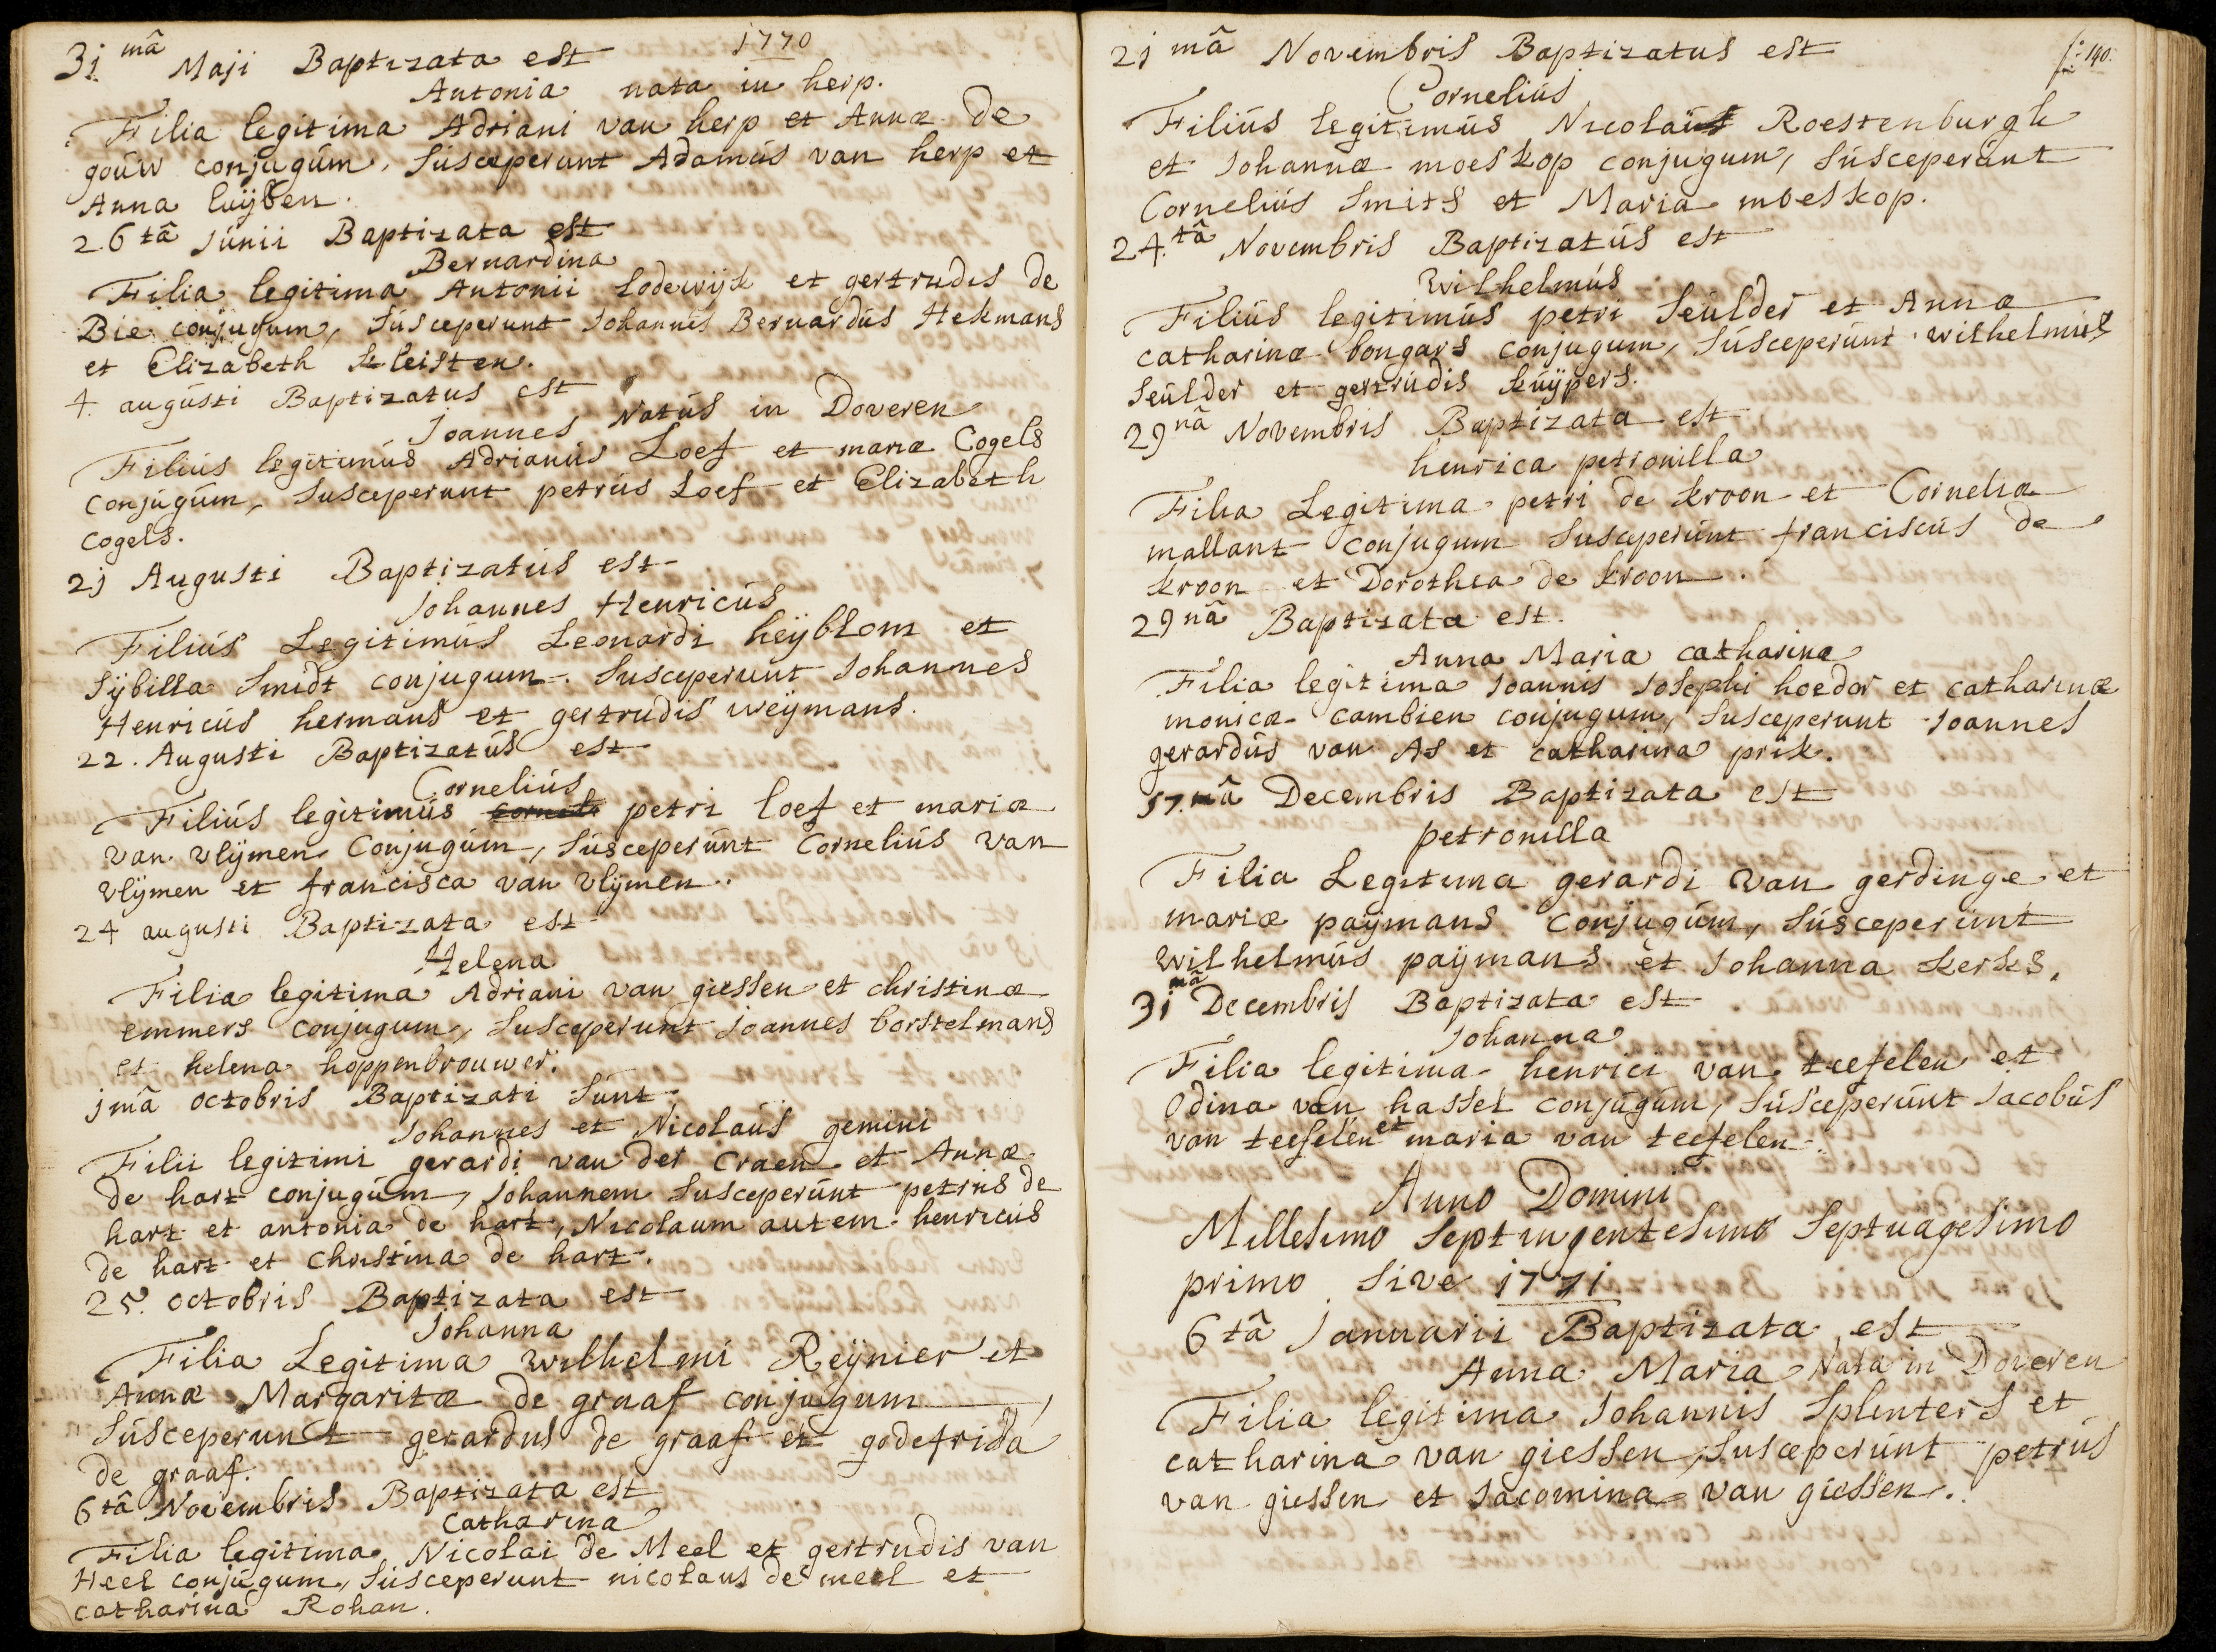 1770
3j mâ Maji Baptizata est
Antonia nata in herp.
Filia legitima Adriani van herp et Annæ de
goúw conjugúm, Súsceperunt Adamús van herp et
Anna luÿben.
26tâ Júnii Baptizata est
Bernardina
Filia legitima Antonii Lodewijk et gertrudis de
Bie conjugum, Súsceperunt Johannes Bernardús Hekmans
et Elizabeth Kleisten.
4. augústi Baptizatus est
Joannes Natús in Doveren
Filiús legitimús Adrianús Loef et mariæ Cogels
Conjúgúm, Susceperunt petrús Loef et Elizabeth
Cogels.
2j Augusti Baptizatús est
Johannes Henricús
Filiús Legitimús Leonardi heÿblom et
Sÿbilla Smidt conjugum. Susceperunt Johannes
Henricús hermans et gertrudis weÿmans.
22. Augusti Baptizatús est
Corneliús
Filiús legitimús petri loef et mariæ
van vlÿmen Conjugúm, Súsceperúnt Corneliús van
vlÿmen et francisca van vlÿmen.
24 augusti Baptizata est
Helena
Filia legitima Adriani van giessen et christinæ
emmers conjugum, Susceperunt joannes borstelmans
et helena hoppenbrouwer.
jmâ octobris Baptizati Súnt
Johannes et Nicolaús gemini
Filii legitimi gerardi van der Craen et Annæ
de hart conjugúm, Johannem Susceperúnt petrús de
hart et antonia de hart, Nicolaum autem henricús
de hart et Christina de hart.
25. octobris Baptizata est
Johanna
Filia Legitima wilhelmi Reÿnier et
Annæ Margaritæ de graaf conjugum,
Súsceperunt gerardus de graaf et godefrida
de graaf.
6tâ Novembris Baptizata est
Catharina
Filia legitima Nicolai de Meel et gertrudis van
Heel conjúgum, Súsceperunt nicolaus de meel et
catharina Rohan.
fo: 140.
2j mâ Novembris Baptizatus est
Corneliús
Filiús legitimús Nicolaús Roestenburgh
et Johannæ moeskop conjugum, Súsceperúnt
Corneliús Smits et Maria moeskop.
24.tâ Novembris Baptizatús est
wilhelmús
Filiús legitimús petri Seúlder et Annæ
catharinæ bongars conjugum, Súsceperúnt wilhelmús
Seúlder et gertrúdis kúÿpers.
29nâ Novembris Baptizata est
henrica petronilla
Filia Legitima petri de kroon et Corneliæ
mallant conjugum Susceperúnt franciscús de
kroon et Dorothea de kroon.
29nâ Baptizata est.
Anna Maria catharina
Filia legitima Joannis Josephi hoedor et catharinæ
monicæ cambien conjugum, Susceperunt Joannes
gerardús van As et catharina prik.
j7.mâ Decembris Baptizata est
petronilla
Filia Legitima gerardi van gerdinge et
mariæ paÿmans conjugúm, Súsceperúnt
wilhelmús paÿmans et Johanna kerks.
3j mâ Decembris Baptizata est
Johanna
Filia legitima henrici van teefelen et
Odina van hassel conjúgúm, Súsceperúnt Jacobús
van teefelen et maria van teefelen.
Anno Domini
Millesimo Septingentesimo Septuagesimo
primo Sive j77j
6tâ Januarii Baptizata est
Anna Maria Nata in Doveren
Filia legitima Johannis Splinters et
catharina van giessen, Susceperúnt petrús
van giessen et Jacomina van giessen.